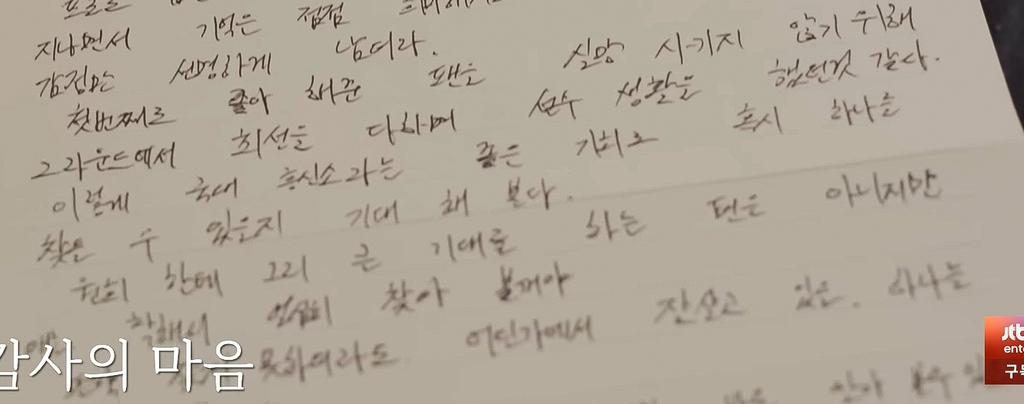 지나면서 기억은 점점
감정만 선명하게 남더라.
첫번째로 좋아 해준 팬을 실망 시키지 않기 위해
그라운드에서 최선을 다하며 선수 생활을 했던것 같다.
이렇게 국대 흥신소라는 좋은 기회로 혹시 하나를
찾을 수 있을지 기대 해 본다.
원희 한테 그리 큰 기대를 하는 편은 아니지만
착해서 열심히 찾아 볼꺼야
못하여라도 어딘가에서 잘살고 있을. 하나는
감사의 마음
jtb
ente
구독